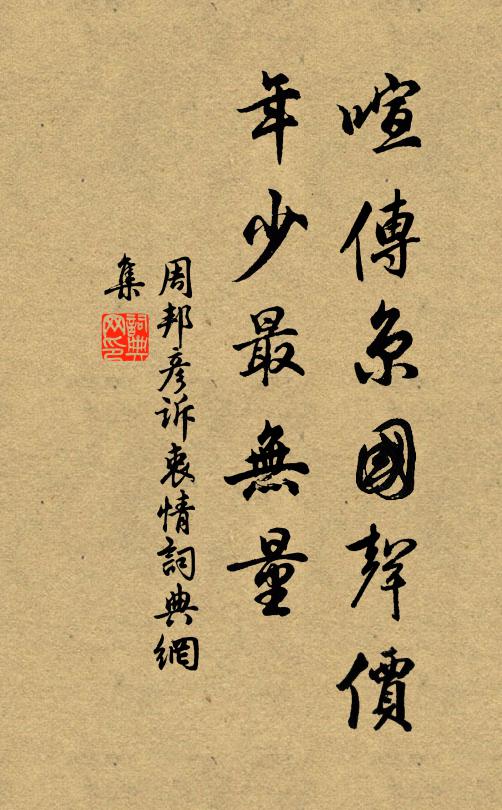 喧傳京國聲價
年少最無量
周邦彥訴衷情詞典網
集
詞典网印